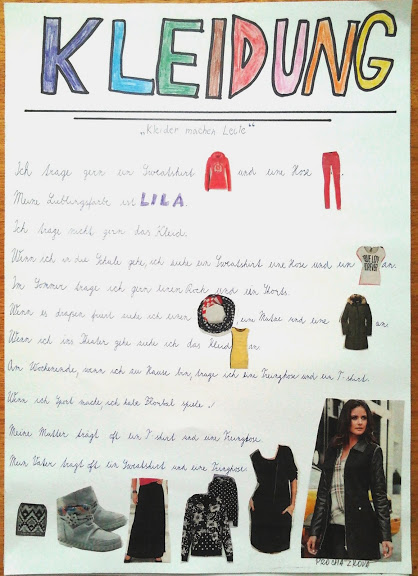 KLEIDUNG
„Kleider machen Leite"
Ich trage gern ein Sweatshirt und eine Hose .
Meine Lieblingsfarbe ist LILA.
Ich trage nicht gern das Kleid.
Wenn ich in die Schule gehe, ich ziehe ein Sweatshirt eine Hose und ein an.
Im Sommer trage ich gern einen Rock und ein Shorts.
Wenn es draßen friert ziehe ich einen eine Mütze und eine an.
Wenn ich ins Theater gehe ziehe ich das Kleid an.
Am Wochenende, wenn ich zu Hause bin, trage ich eine Treinghose und ein T-shirt.
Wenn ich Sport mache, ich habe Florbal spiele .!
Meine Mutter trägt oft ein T-shirt und eine Treinghose.
Mein Vater tragt oft ein Sweatshirt und eine Treinghose.